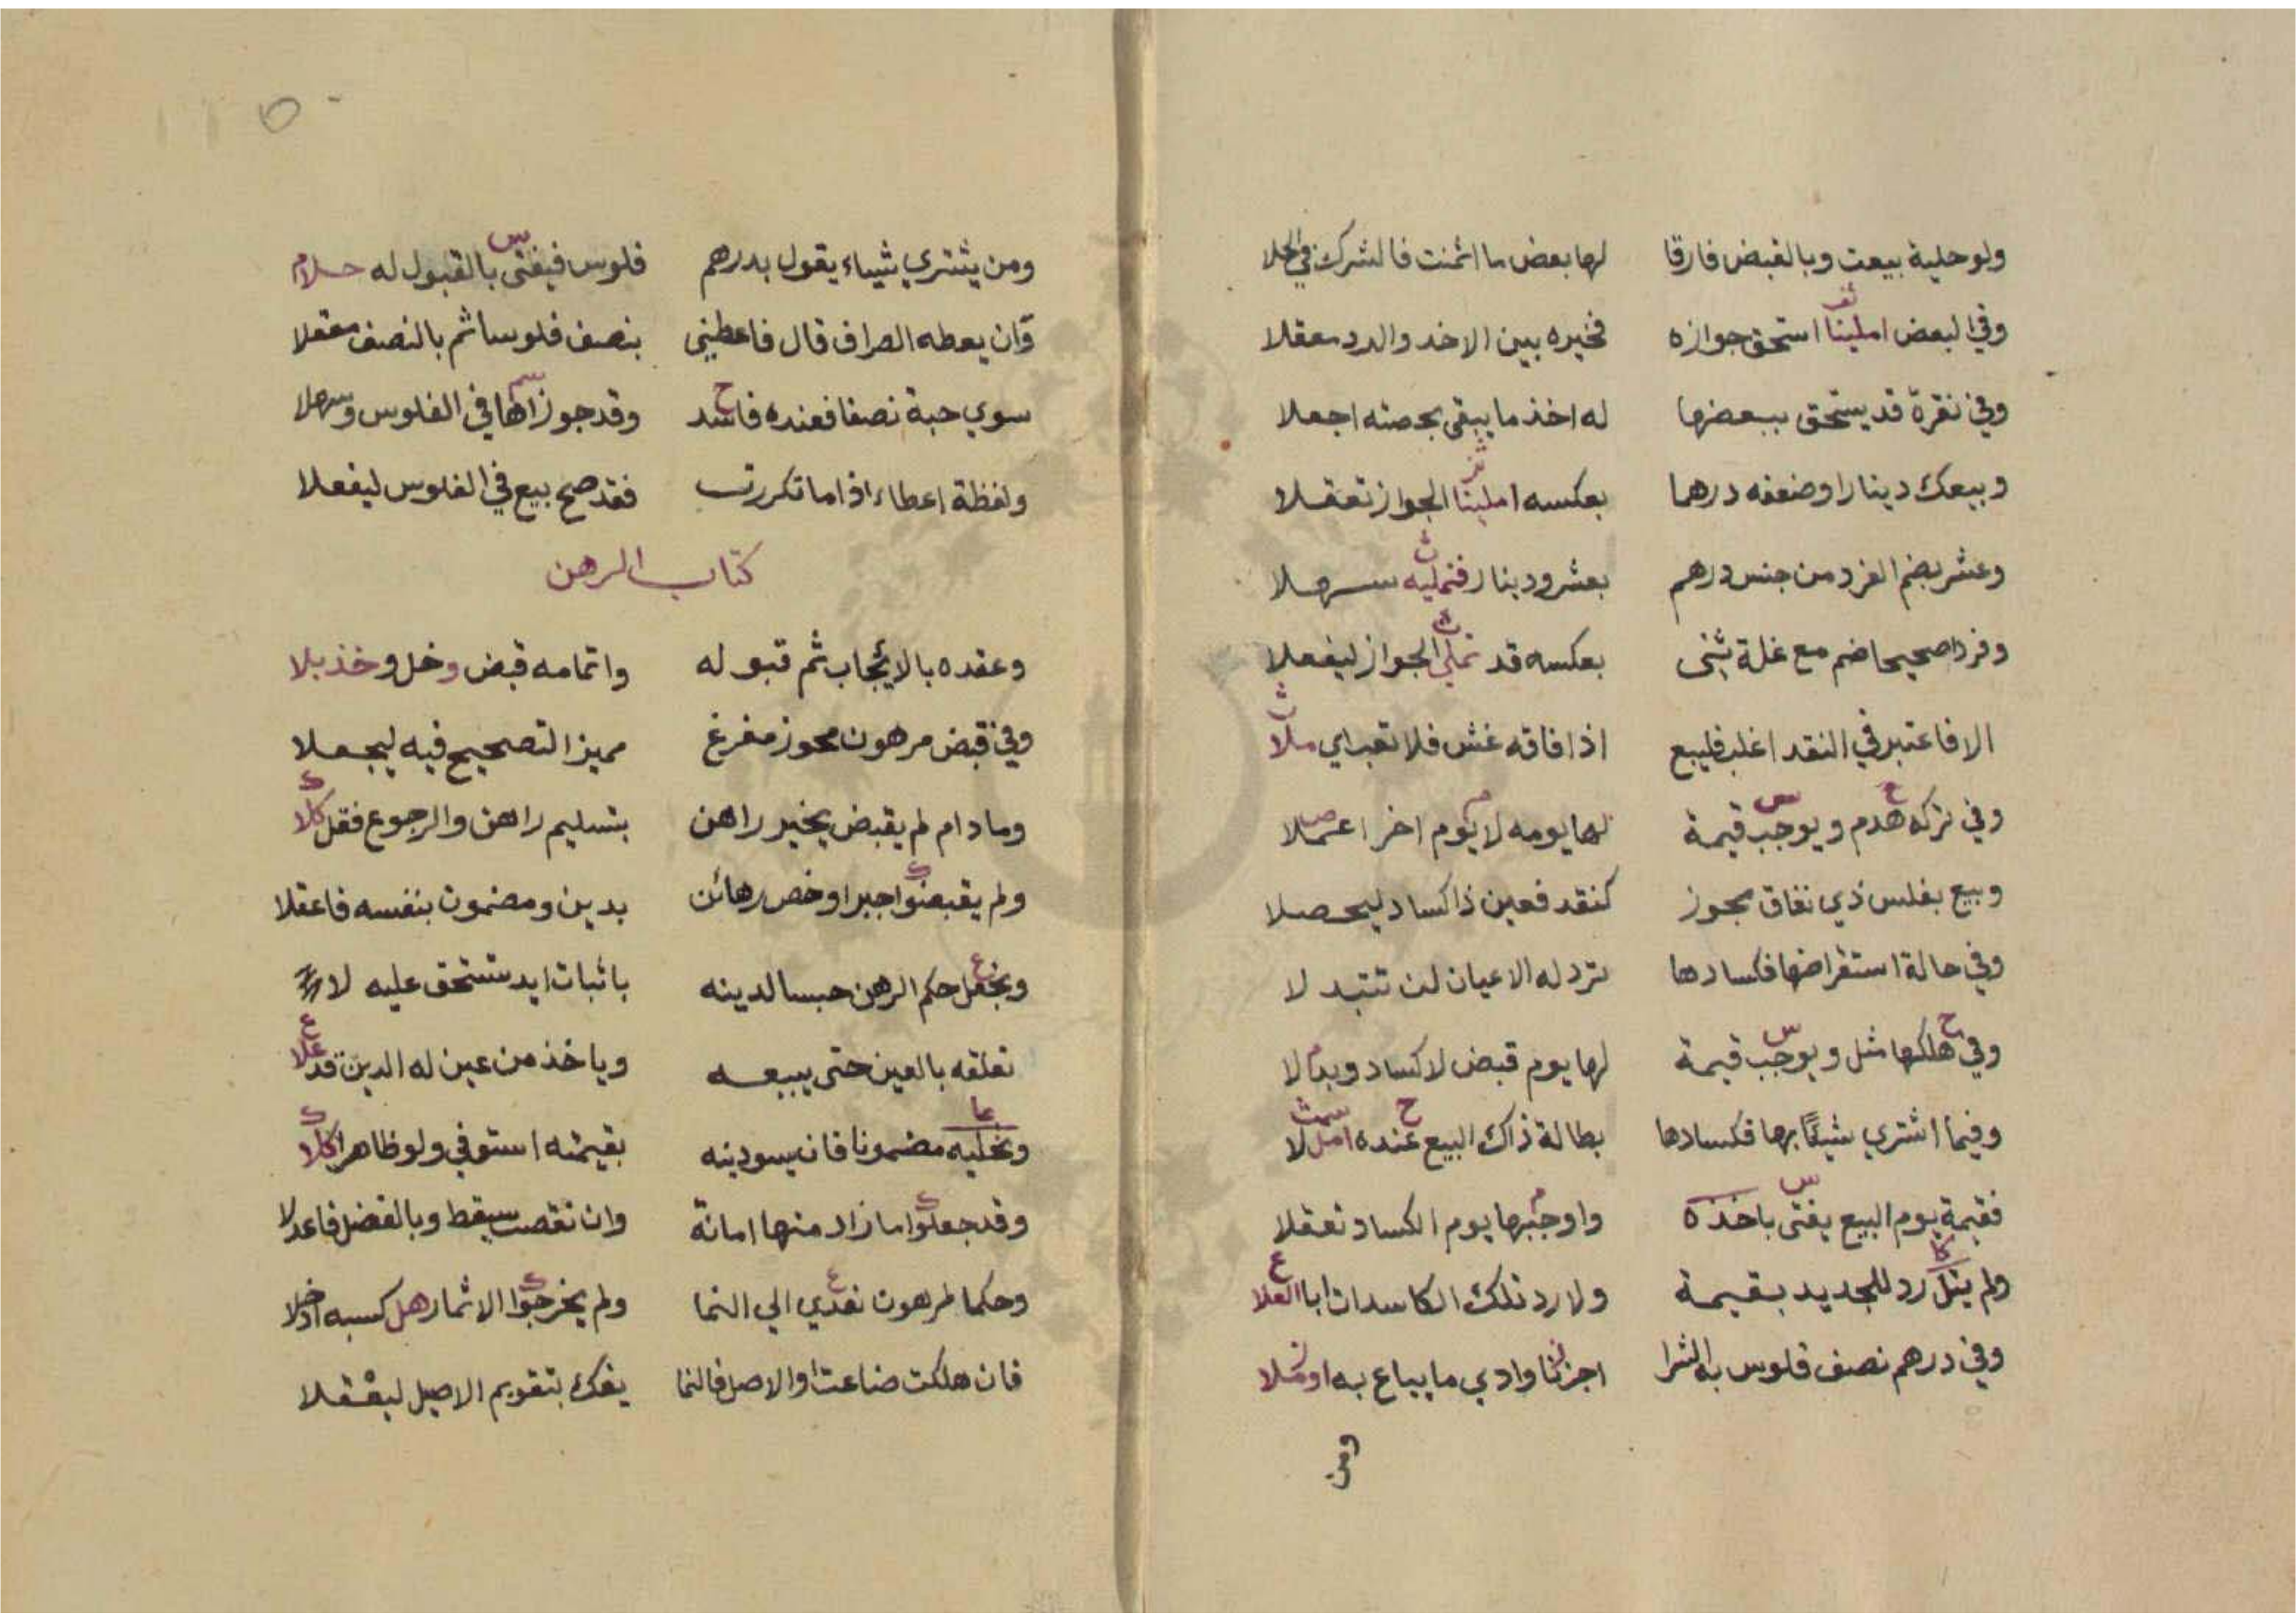 ولو حلية بيعت وبالقبض فارقا لها بعض ما اثمنت فالشرك في الحلا
وفي البعض املينا استحق جوازه فخيره بين الاخذ والرد معقلا
وفي نقرة قد يستحق ببعضها له اخذ ما يبقى بحصته اجعلا
وبيعك دينارا وضعفه درهما بعكسه املينا الجواز تعقلا
وعشر بضم الفرد من جنس درهم بعشر ودينار فنمليه سهلا
وفردا صحيحا ضم مع غلة ثنى بعكسه قد تملي الجواز ليفعلا
الا فاعتبر في النقد اغلب فليبع اذا فاقه غش فلا تعب اي ملا
وفي تركه هدم ويوجب قيمة لها يومه لا يوم اخر اعملا
وبيع بفلس ذي نفاق مجوز كنقد فعين ذا كساد ليحصلا
وفي حالة استقراضها فكسادها ترد له الاعيان لن تتبدلا
وفي هلكها مثل ويوجب قيمة لها يوم قبض لا كساد وبدلا
وفيما اشتري شيئا بها فكسادها بطالة ذاك البيع عنده امللا
فقيمة يوم البيع يفتى باخذه واوجبها يوم الكساد تعقلا
ولم يتل رد للجديد بقيمة ولا رد تلك الكاسدات ابا العلا
وفي درهم نصف فلوس به الشرا اجزنا وادي ما يباع به او ملا
ومن
ومن يشتري شيياء يقول بدرهم فلوس فيفتى بالقبول له حلا
وان يعطه الصراف قال فاعطني بنصف فلوسا ثم بالنصف معقلا
سوي حبة نصفا فعنده فاسد وقد جوزاها في الفلوس وسهلا
ولفظة اعطاء اذا ما تكررت فقد صح بيع في الفلوس ليفعلا
كتاب الرهن
وعقده بالايجاب ثم قبوله واتمامه قبض وخل وخذ بلا
وفي قبض مرهون محوز مفرغ مميز التصحيح فيه ليجعلا
وما دام لم يقبض يخير راهن بتسليم راهن والرجوع فقل كلا
ولم يقبضوا جبرا وخص رهائن بدين ومضمون بنفسه فاعقلا
ونجعل حكم الرهن حبسا لدينه باثبات ايد تستحق عليه لا
تعلقه بالعين حتى يبيعه وياخذ من عين له الدين قد علا
ونخليه مضمونا فان يسو دينه بقيمته استوفي ولو ظاهرا كلا
وقد جعلوا ما زاد منها امانة وان نقصت سيقط وبالفضل فاعدلا
وحكما لمرهون نعدي الي النما ولم يخرجوا الاثمار هل كسبه ادخلا
فان هلكت ضاعت او الاصل فالنما يفك بتقويم الاصيل ليعقلا